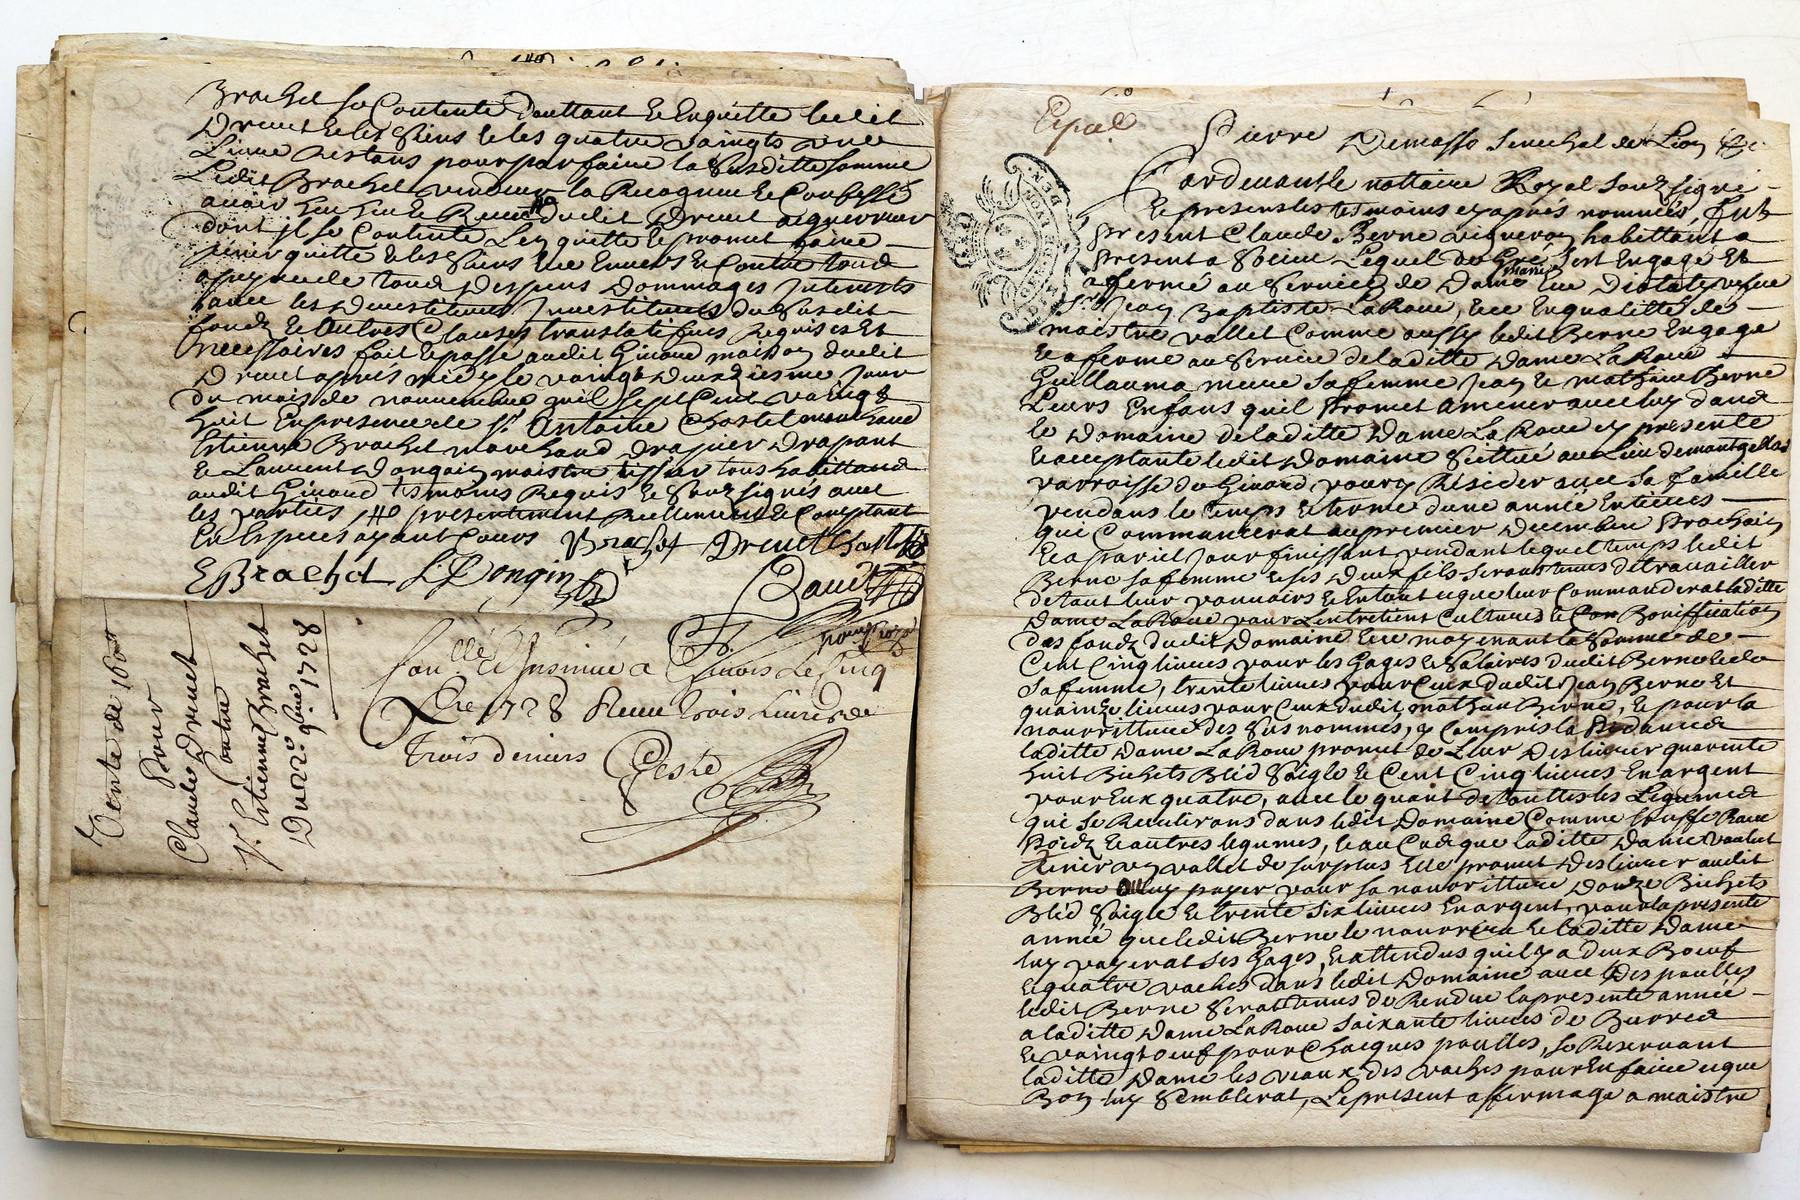 Brachet se Contente Quittant & Enquitte ledit
Dreuet & les Siens & les quatre vaingts une
Liure Restans pour parfaire la Susditte somme
Ledit Brachet vendeur la Recogneue & Confessé
auoir heu & Receu dudit Dreuet acquereur
dont jl se Contente Len quitte & promet faire
tenir quitte & les Siens Enuers & Contre tous
a peyne de tous Despens Dommages Interests
auec les Deuestitures Inuestitures du Susdit
fondz & Autres Clauses translatifues Requises Et
Necessaires fait & passé audit Giraud maison dudit
Dreuet apres midy le vaingt Deuxiesme Jour
du mois de nouuembre mil Sept Cent vaingt
huit En presence de Sr Antoine Chastel marchand
Estienne Brachet marchand Drapier Drapant
& Laurent Dongin maistre tissier tous habittans
audit Giraud tesmoins Requis & Souz signés auec
les parties /#/ presentement Reellement & Comptant
En Especes ayant Cours Brachet Dreuet Chastel
E Brachet L Dongin Baudt
Conllé & Insinué a Le Cinq
Xbre 1728 Receu trois Liures de
trois deniers Geste
Vente de 160 lt
Pour
Claude Dreuet
Contre
Sr Estienne Brachet
Du 22e 9bre 1728
Expié
Pierre Demasso Senechal de Lion &c
Pardeuant le nottaire Royal Souz signé
& presens les tesmoins cy apres nommés, fut
present Claude Berne vigneron habittant a
present a Lequel de Gré sest Engagé Et
afermé au Seruice de Dame marie vefue
Sr Jean Baptiste LaRoue, & ce En qualitté de
maistre vallet Comme aussy ledit Berne Engage
& aferme au Seruice de laditte Dame LaRoue
Guillauma sa femme Jean & mathieu Berne
Leurs Enfans quil Promet amener auec luy dans
le Domaine de laditte Dame LaRoue cy presente
& acceptante ledit Domaine Scittué au Lieu de
parroisse du Girard pour y Resider auec sa famille
pendans le temps & terme dune année Entiere
qui Commancerat au premier Decembre Prochain
& a pareil Jour finissant pendant lequel temps ledit
Berne sa femme & ses deux fils seront tenus de trauailler
de tout leur pouuoirs & Entout ce que leur Commanderat laditte
Dame LaRoue pour Lentretient Cultures & Bonification
des fondz dudit Domaine & ce moyenant la Somme de
Cent Cinq liures pour les Gages & Salaires dudit Berne & de
sa femme, trente liures pour Ceux dudit Jean Berne Et
quainze liures pour Ceux dudit mathieu Berne, & pour la
nourritture des Sus nommés, y Compris la
laditte Dame LaRoue promet de Leur Desliurer quarente
huit Bichets Bléd Soigle & Cent Cinq liures En argent
pour Eux quatre, auec le quart de touttes les Legumes
qui se Recuilirons dans ledit Domaine Comme Raue
Poidz & autres legumes, & au Cas que laditte Dame voulut
tenir un vallet de surplus Elle promet Desliurer audit
Berne ou luy payer pour sa nourritture Douze Bichets
Bléd Soigle & trente six liures En argent, pour la presente
année que ledit Berne le nourrira & laditte Dame
luy payerat ses Gages, & attendus quil y a deux Bœuf
& quatre vaches dans ledit Domaine auec des poulles
ledit Berne Serat tenus de Rendue la presente année
a laditte Dame LaRoue Soixante liures de Burres
& vaingt oeuf pour Chacques poulles, se Reseruant
laditte Dame les veaux des vaches pour En faire ce que
Bon luy Semblerat, Le present affermage a maistre